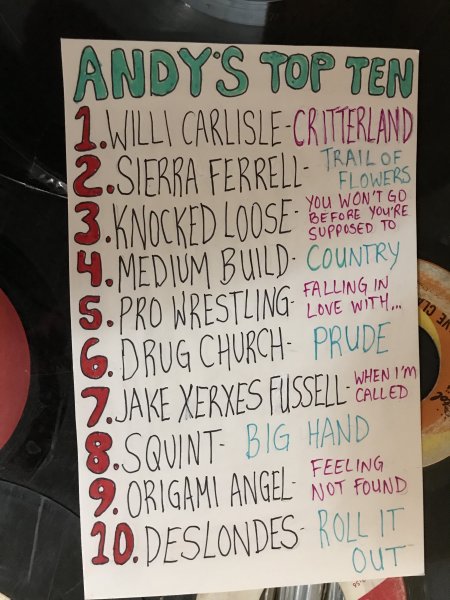 ANDY'S TOP TEN
1. WILLI CARLISLE- CRITTERLAND
2. SIERRA FERRELL- TRAIL OF
FLOWERS
3. KNOCKED LOOSE- YOU WON'T GO
BEFORE YOU'RE
SUPPOSED TO
4. MEDIUM BUILD- COUNTRY
5. PRO WRESTLING- FALLING IN
LOVE WITH...
6. DRUG CHURCH- PRUDE
7. JAKE XERXES FUSSELL- WHEN I'M
CALLED
8. SQUINT- BIG HAND
9. ORIGAMI ANGEL- FEELING
NOT FOUND
10. DESLONDES- ROLL IT
OUT